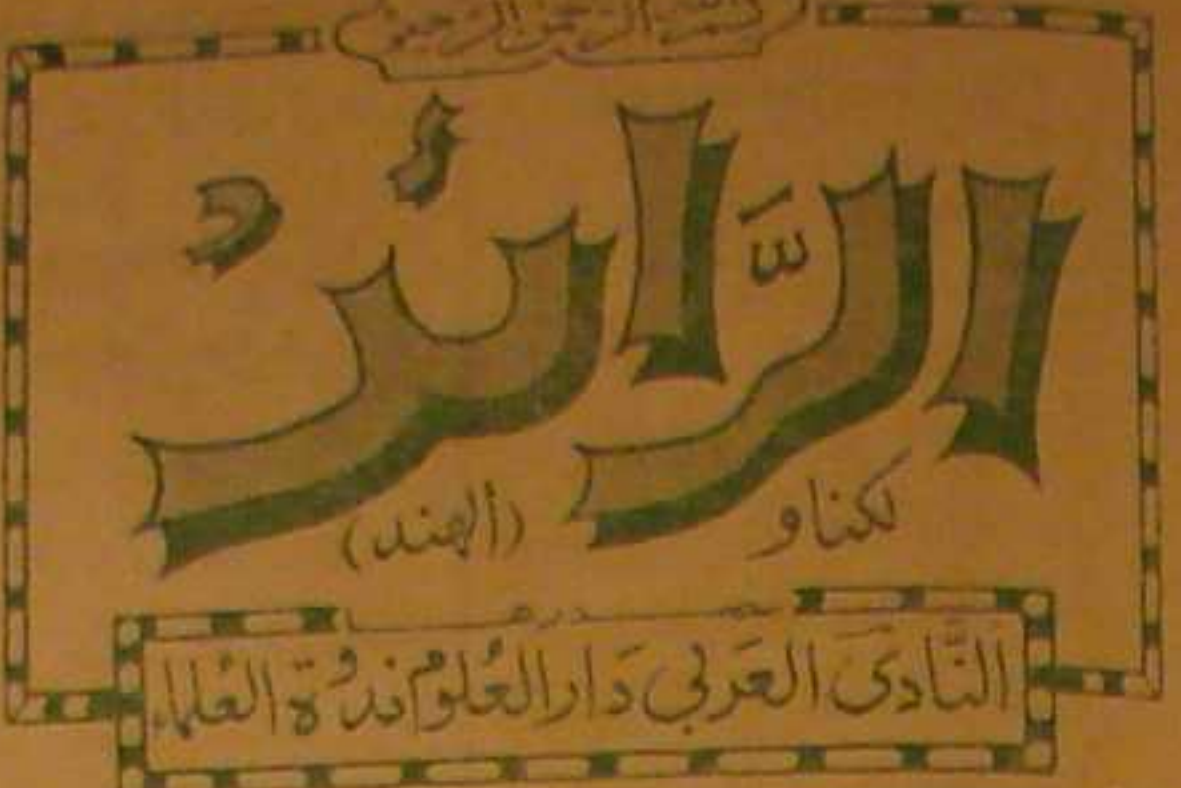 بسم الله الرحمن الرحيم
الرَّائدُ
لكناو (ألهند)
يصدرها
النَّادى العَربي دَار العُلوم ندوة العُلماء